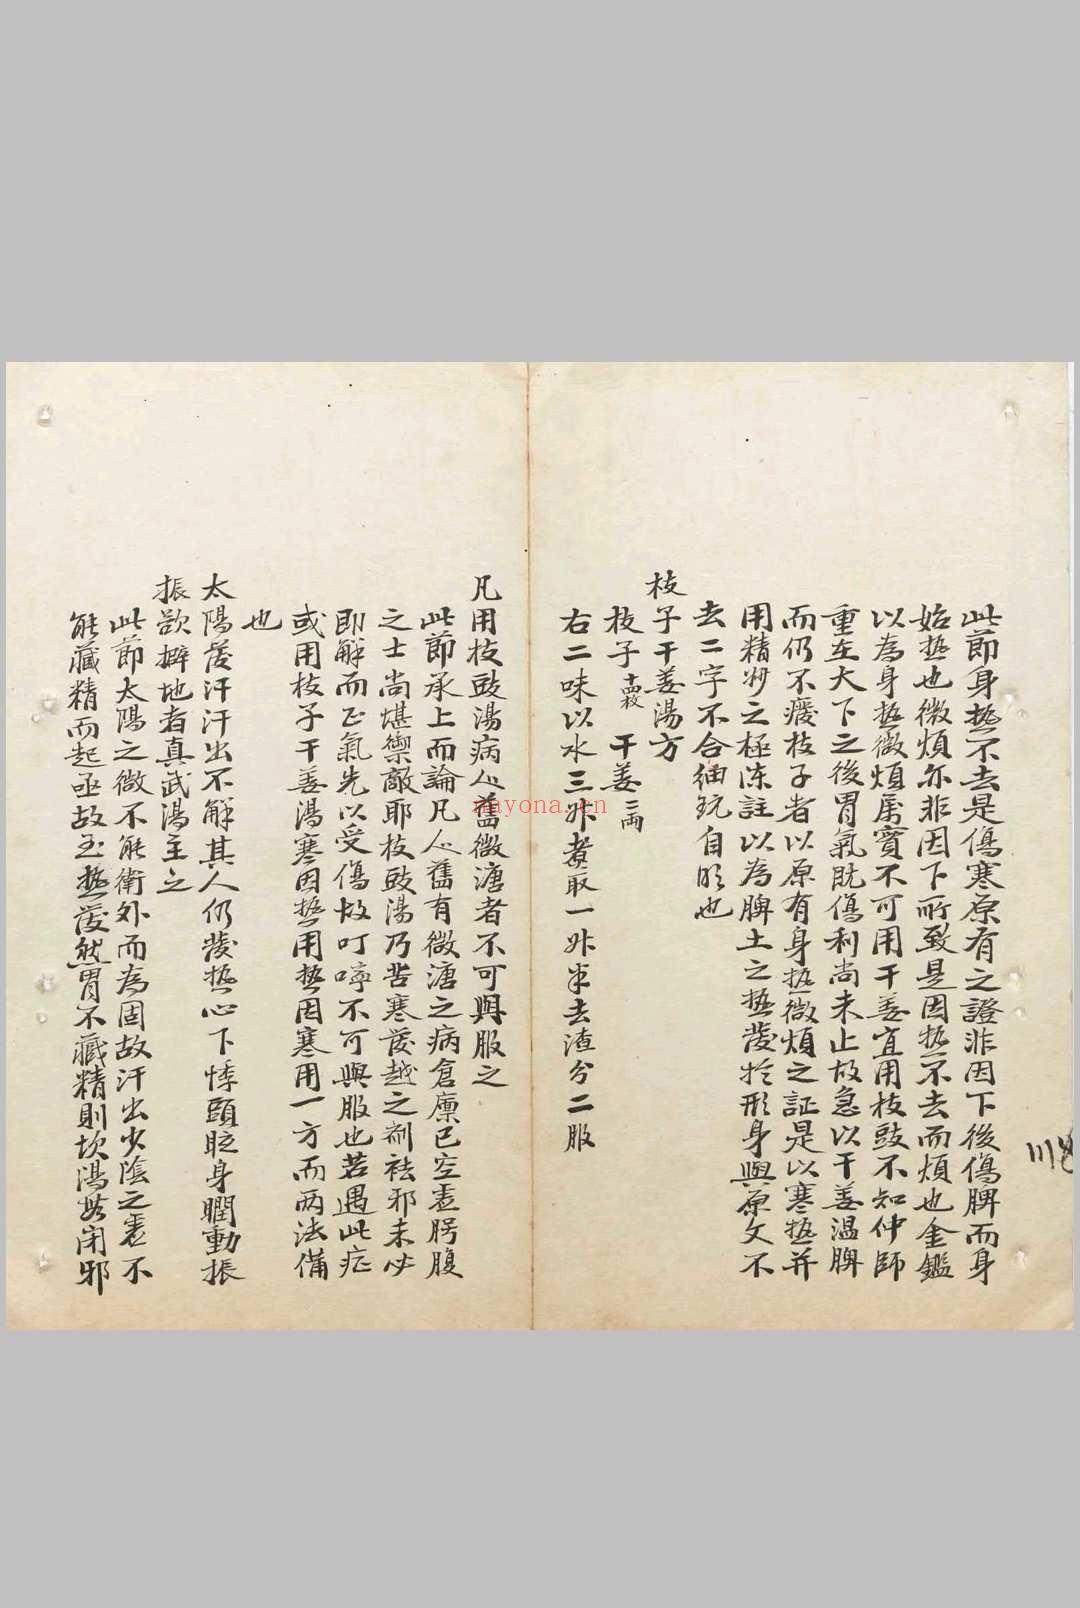 此節身熱不去是傷寒原有之證非因下後傷脾而身
始熱也微煩亦非因下所致是因熱不去而煩也金鑑
以為身熱微煩屬實不可用干姜宜用枝豉不知仲師
重在大下之後胃氣既傷利尚未止故急以干姜溫脾
而仍不癈枝子者以原有身熱微煩之証是以寒熱并
用精妙之極陈註以為脾土之熱發於形身與原文不
去二字不合細玩自明也
枝子干姜湯方
枝子十四枚 干姜二兩
右二味以水三升煑取一升半去渣分二服
凡用枝豉湯病人舊微溏者不可與服之
此節承上而論凡人舊有微溏之病倉廪已空虛腭腹
之士尚堪禦敵耶枝豉湯乃苦寒發越之剤祛邪未必
即解而正氣先以受傷故叮嚀不可與服也若遇此症
或用枝子干姜湯寒因熱用熱因寒用一方而两法備
也
太陽發汗汗出不解其人仍發熱心下悸頭眩身瞤動振
振欲擗地者真武湯主之
此節太陽之微不能衛外而為固故汗出少陰之虛不
能藏精而起亟故至熱發然胃不藏精則坎陽若閉邪
mayona.cn